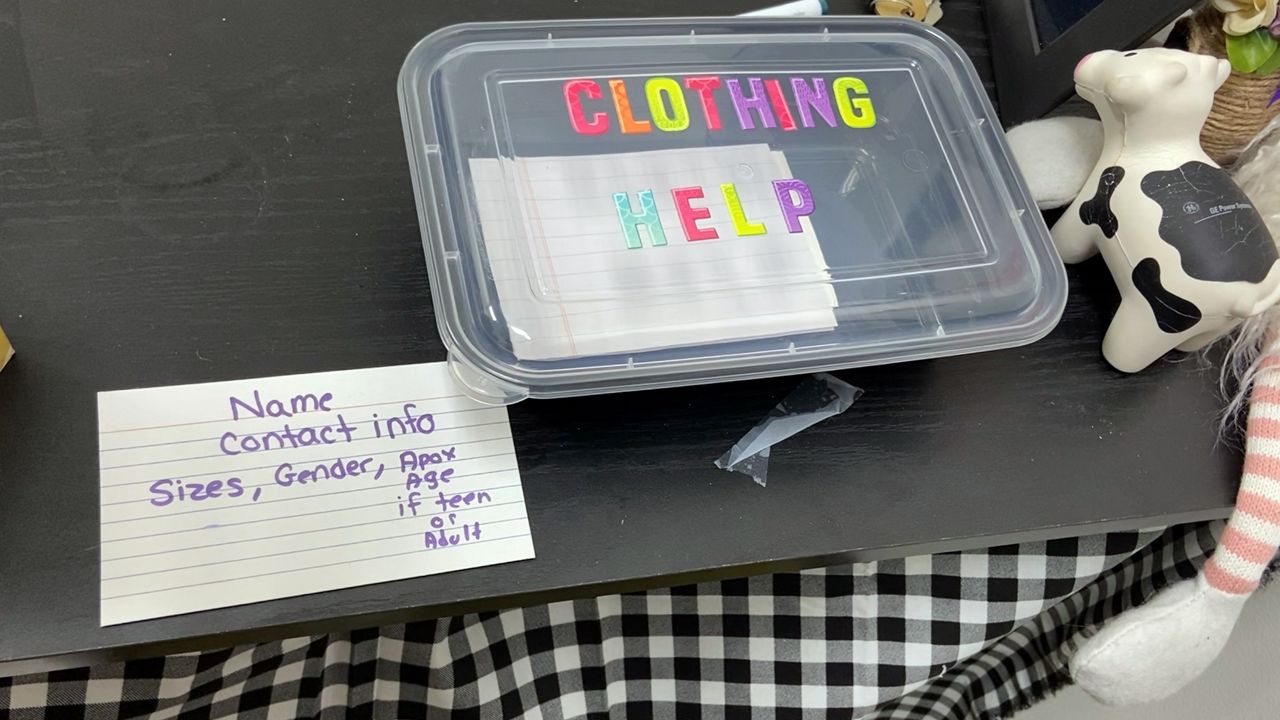 CLOTHING
HELP
GE Power Systems
Name
Contact info
Sizes, Gender, Apox
Age
if teen
or
Adult